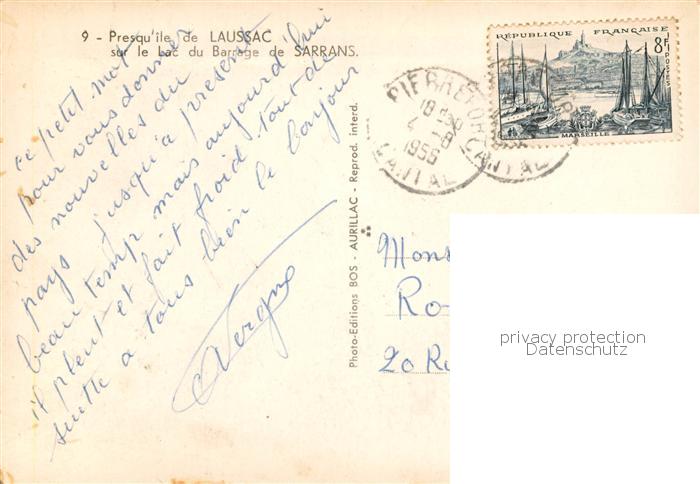 9 - Presqu'île de LAUSSAC
sur le Lac du Barrage de SARRANS.
ce petit mot
pour vous donner
des nouvelles du
pays jusqu'a présent
beau temp mais aujourd'hui
il pleut et fait froid tout de
suitte a tous bien le bonjour
Vergne
Photo-Editions BOS - AURILLAC - Reprod. interd.
RÉPUBLIQUE FRANÇAISE
8F
POSTES
MARSEILLE
PIERREFORT
18 H
4 - 8
1956
CANTAL
CANTAL
Mons
Ro
20 Ru
privacy protection
Datenschutz